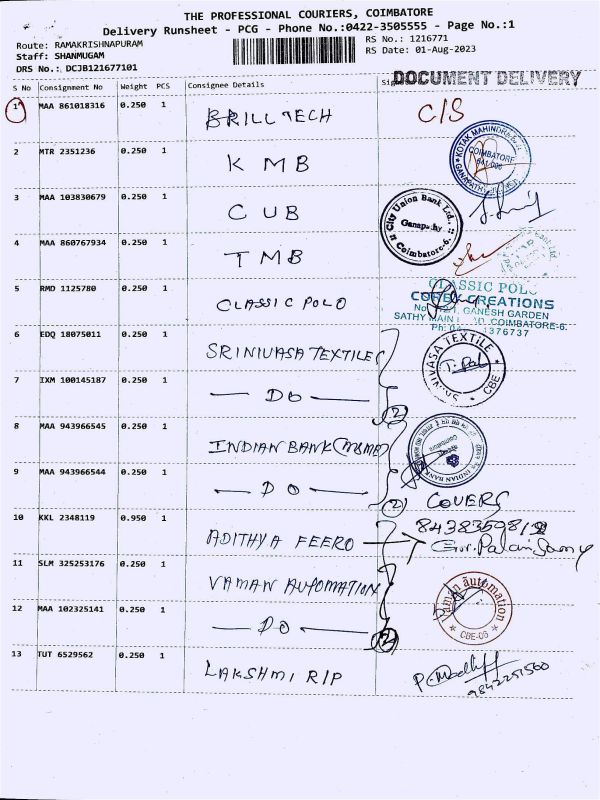 THE PROFESSIONAL COURIERS, COIMBATORE
Delivery Runsheet - PCG - Phone No.:0422-3505555 - Page No.:1
Route: RAMAKRISHNAPURAM
RS No.: 1216771
Staff: SHANMUGAM
RS Date: 01-Aug-2023
DRS No.: DCJB121677101
DOCUMENT DELIVERY
S No Consignment No Weight PCS Consignee Details
1 MAA 861018316 0.250 1 BRILLTECH C/S
KOTAK MAHINDRA
COIMBATORE
641 006
GANAPATHY
2 MTR 2351236 0.250 1 KMB
3 MAA 103830679 0.250 1 CUB
City Union Bank Ltd.,
Ganapathy
Coimbatore-6.
4 MAA 860767934 0.250 1 TMB
5 RMD 1125780 0.250 1 CLASSIC POLO
CLASSIC POLO
CREATIONS
GANESH GARDEN
SATHY MAIN COIMBATORE-6.
Ph: 376737
6 EDQ 18075011 0.250 1 SRINIVASA TEXTILES
SRINIVASA TEXTILE
CBE
7 IXM 100145187 0.250 1 — DO — (2)
8 MAA 943966545 0.250 1 INDIAN BANK (MSME)
INDIAN BANK
9 MAA 943966544 0.250 1 — DO — (2)
COVERS
10 KKL 2348119 0.950 1 ADITHYA FEERO
11 SLM 325253176 0.250 1 VAMAN AUTOMATION
vaman automation
CBE-06
12 MAA 102325141 0.250 1 — DO — (2)
13 TUT 6529562 0.250 1 LAKSHMI RIP
9842251500